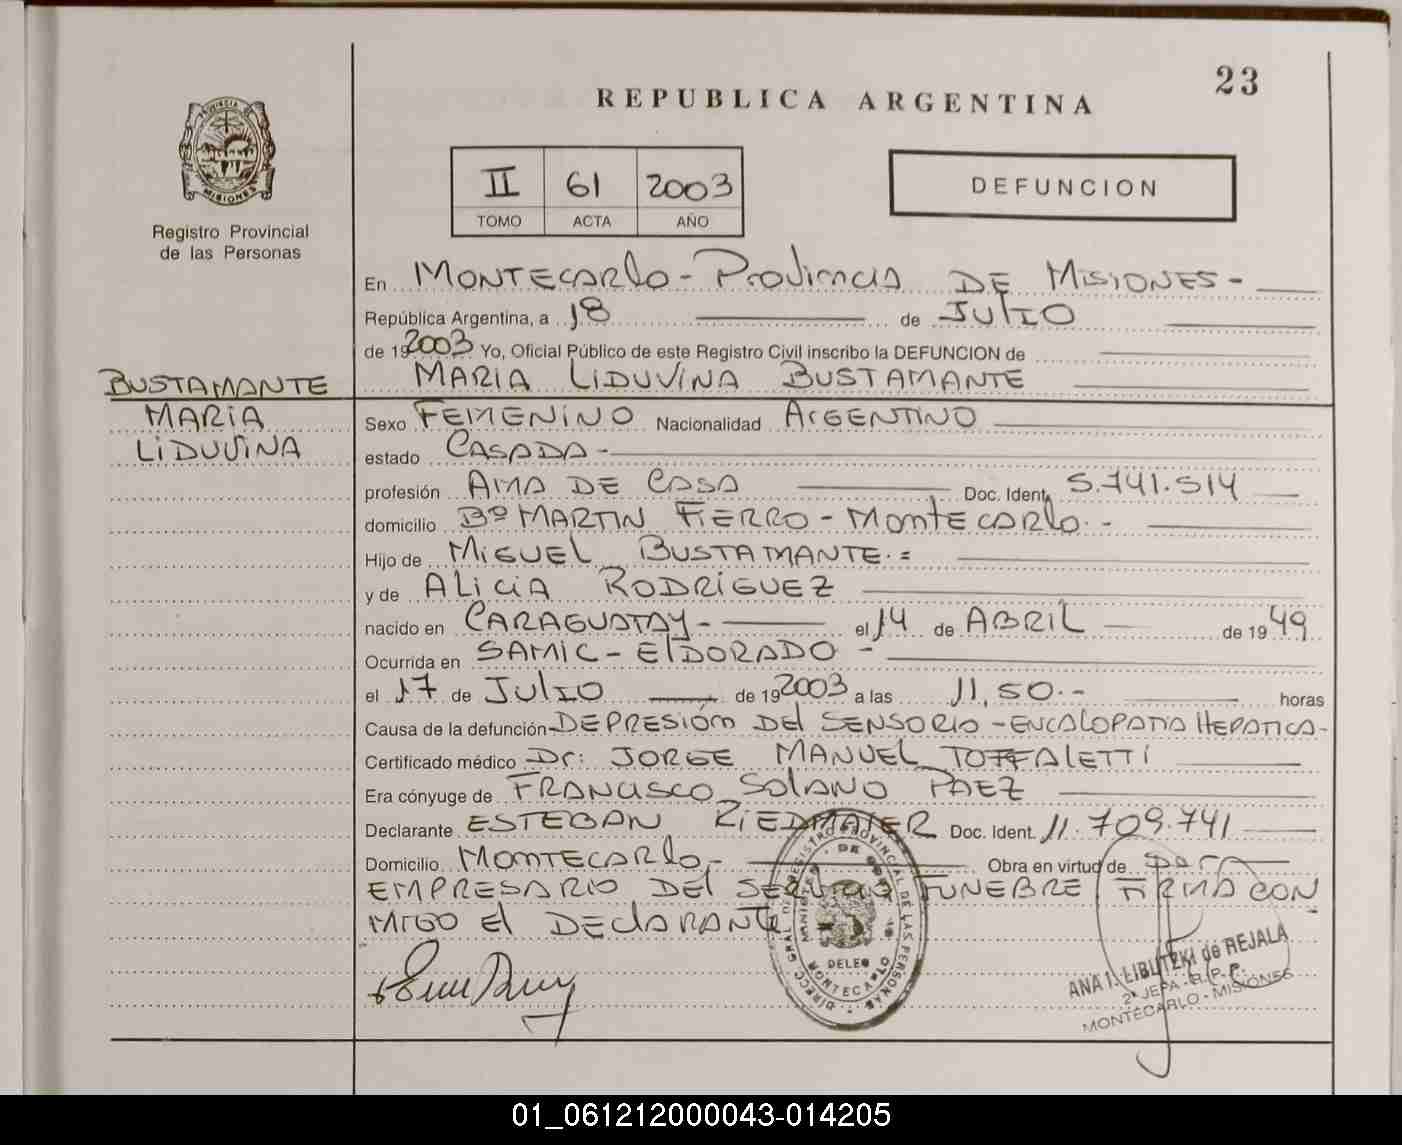 23
REPUBLICA ARGENTINA
PROVINCIA DE
MISIONES
Registro Provincial
de las Personas
II 61 2003
TOMO ACTA AÑO
DEFUNCION
En MONTECARLO - PROVINCIA DE MISIONES -
República Argentina, a 18 de JULIO
de 19 2003 Yo, Oficial Público de este Registro Civil inscribo la DEFUNCION de
MARIA LIDUVINA BUSTAMANTE
BUSTAMANTE
MARIA
LIDUVINA
Sexo FEMENINO Nacionalidad ARGENTINO
estado CASADA -
profesión AMA DE CASA Doc. Ident. 5.741.514
domicilio Bº MARTIN FIERRO - MONTECARLO. -
Hijo de MIGUEL BUSTAMANTE. =
y de ALICIA RODRIGUEZ
nacido en CARAGUATAY - el 14 de ABRIL de 19 49
Ocurrida en SAMIC - ELDORADO -
el 17 de JULIO de 19 2003 a las 11,50.-- horas
Causa de la defunción DEPRESIÓN DEL SENSORIO - ENCALOPATIA HEPATICA -
Certificado médico Dr: JORGE MANUEL TOFFALETTI
Era cónyuge de FRANCISCO SOLANO PAEZ
Declarante ESTEBAN RIEDMAIER Doc. Ident. 11.709.741
Domicilio MONTECARLO - Obra en virtud de SER
EMPRESARIO DEL SERVICIO FUNEBRE FIRMA CON
MIGO EL DECLARANTE
DIRECC. GRAL. DE REGISTRO PROVINCIAL DE LAS PERSONAS
DELEG
MONTECARLO
ANA I. LIBUTZKI de REJALA
2º JEFA - R.P.P.
MONTECARLO - MISIONES
01_061212000043-014205